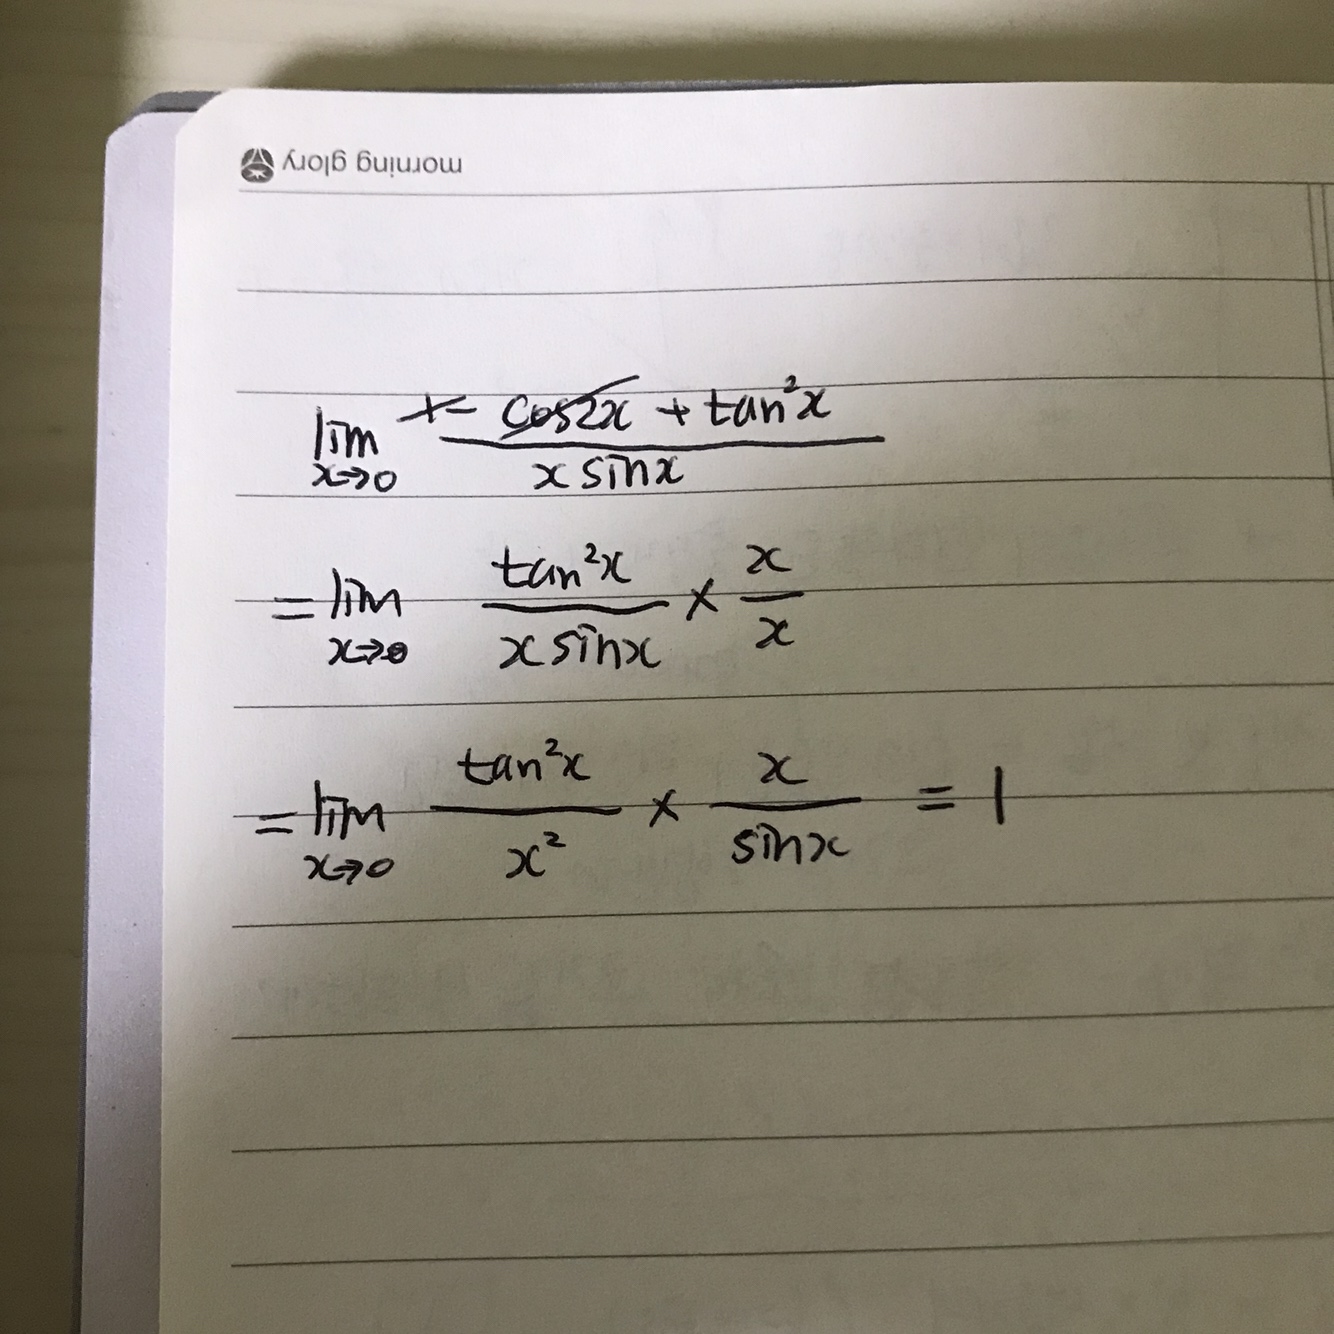 morning glory
lim x→0 (1 - cos2x + tan²x) / (x sinx)
= lim x→0 tan²x / (x sinx) × x/x
= lim x→0 tan²x / x² × x / sinx = 1